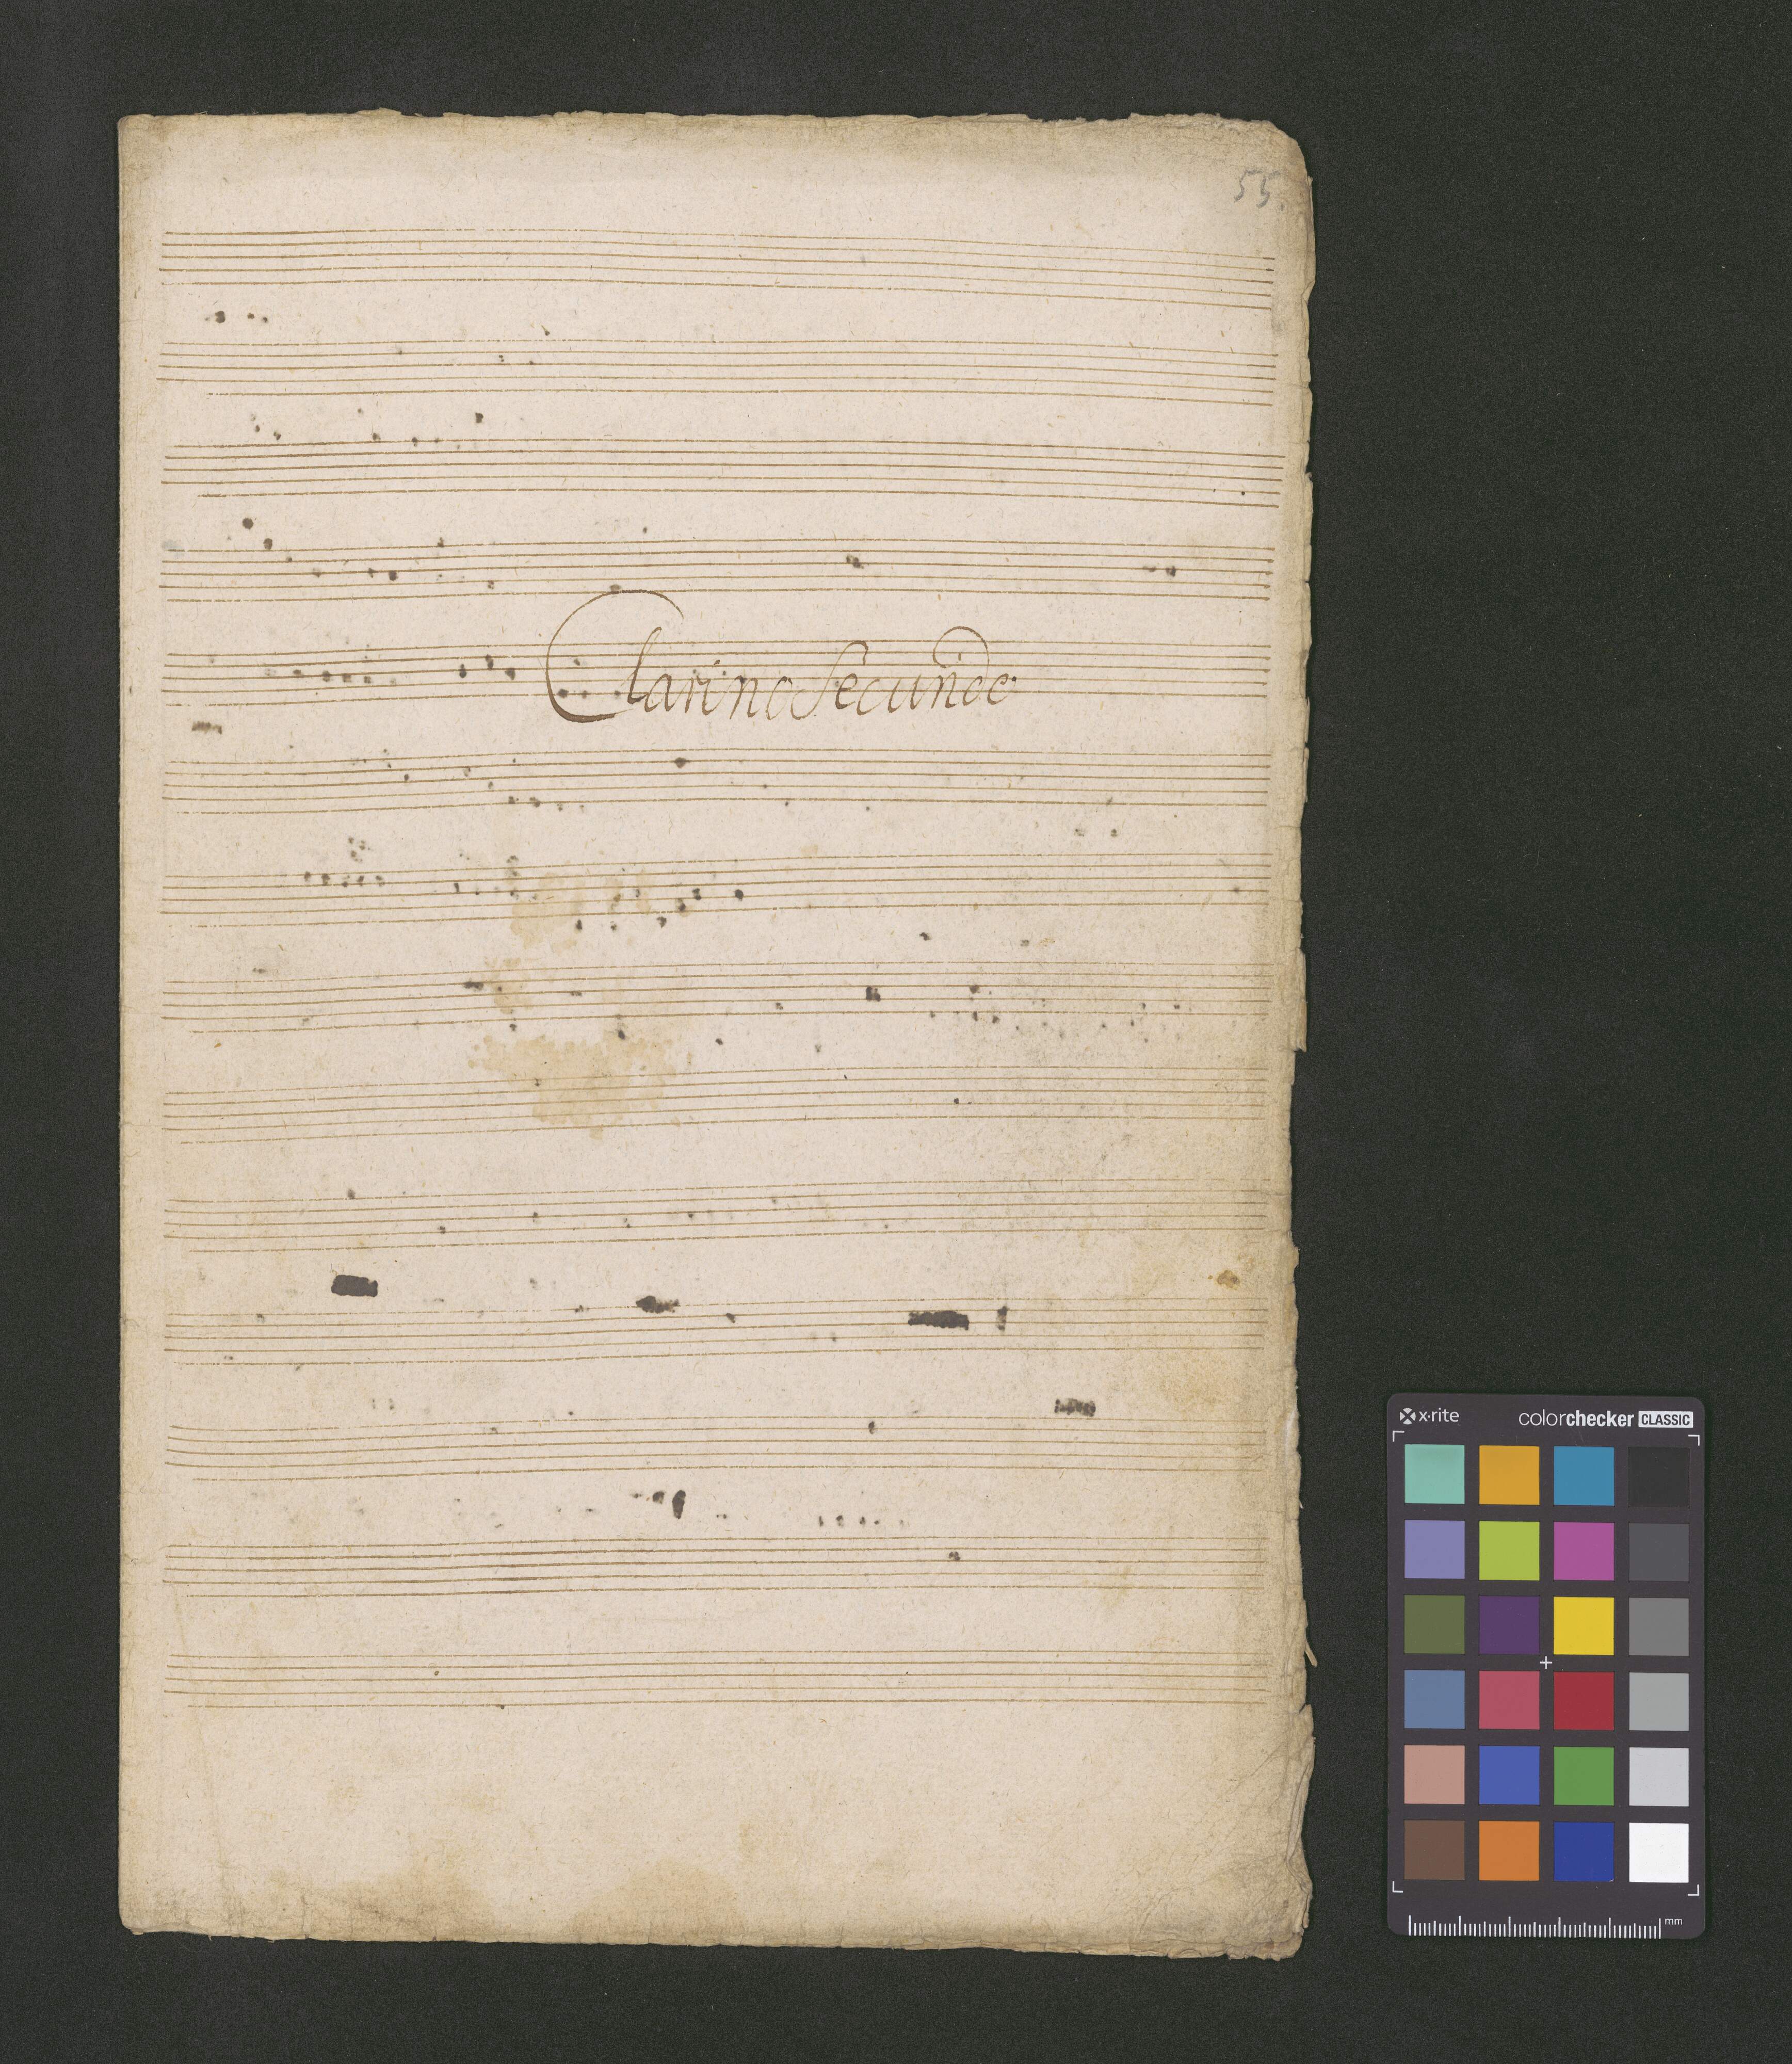 55.
Clarino Secundo
x-rite
colorchecker CLASSIC
mm